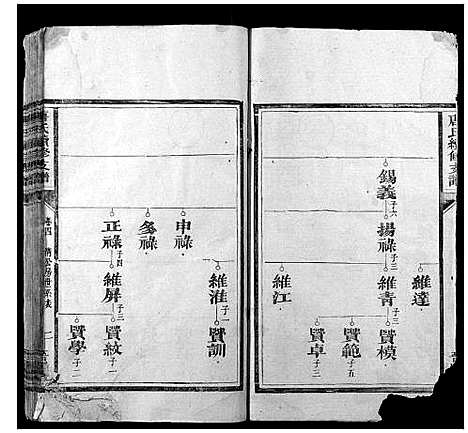 唐氏續修支譜
錫義
子六
揚祿
子三
維達
維青
子三
維江
賢模
賢範
子五
賢卓
子三
申祿
多祿
正祿
子四
維淮
子一
維屏
子三
賢訓
賢紋
子一
賢學
子二
唐氏續修支譜
卷四